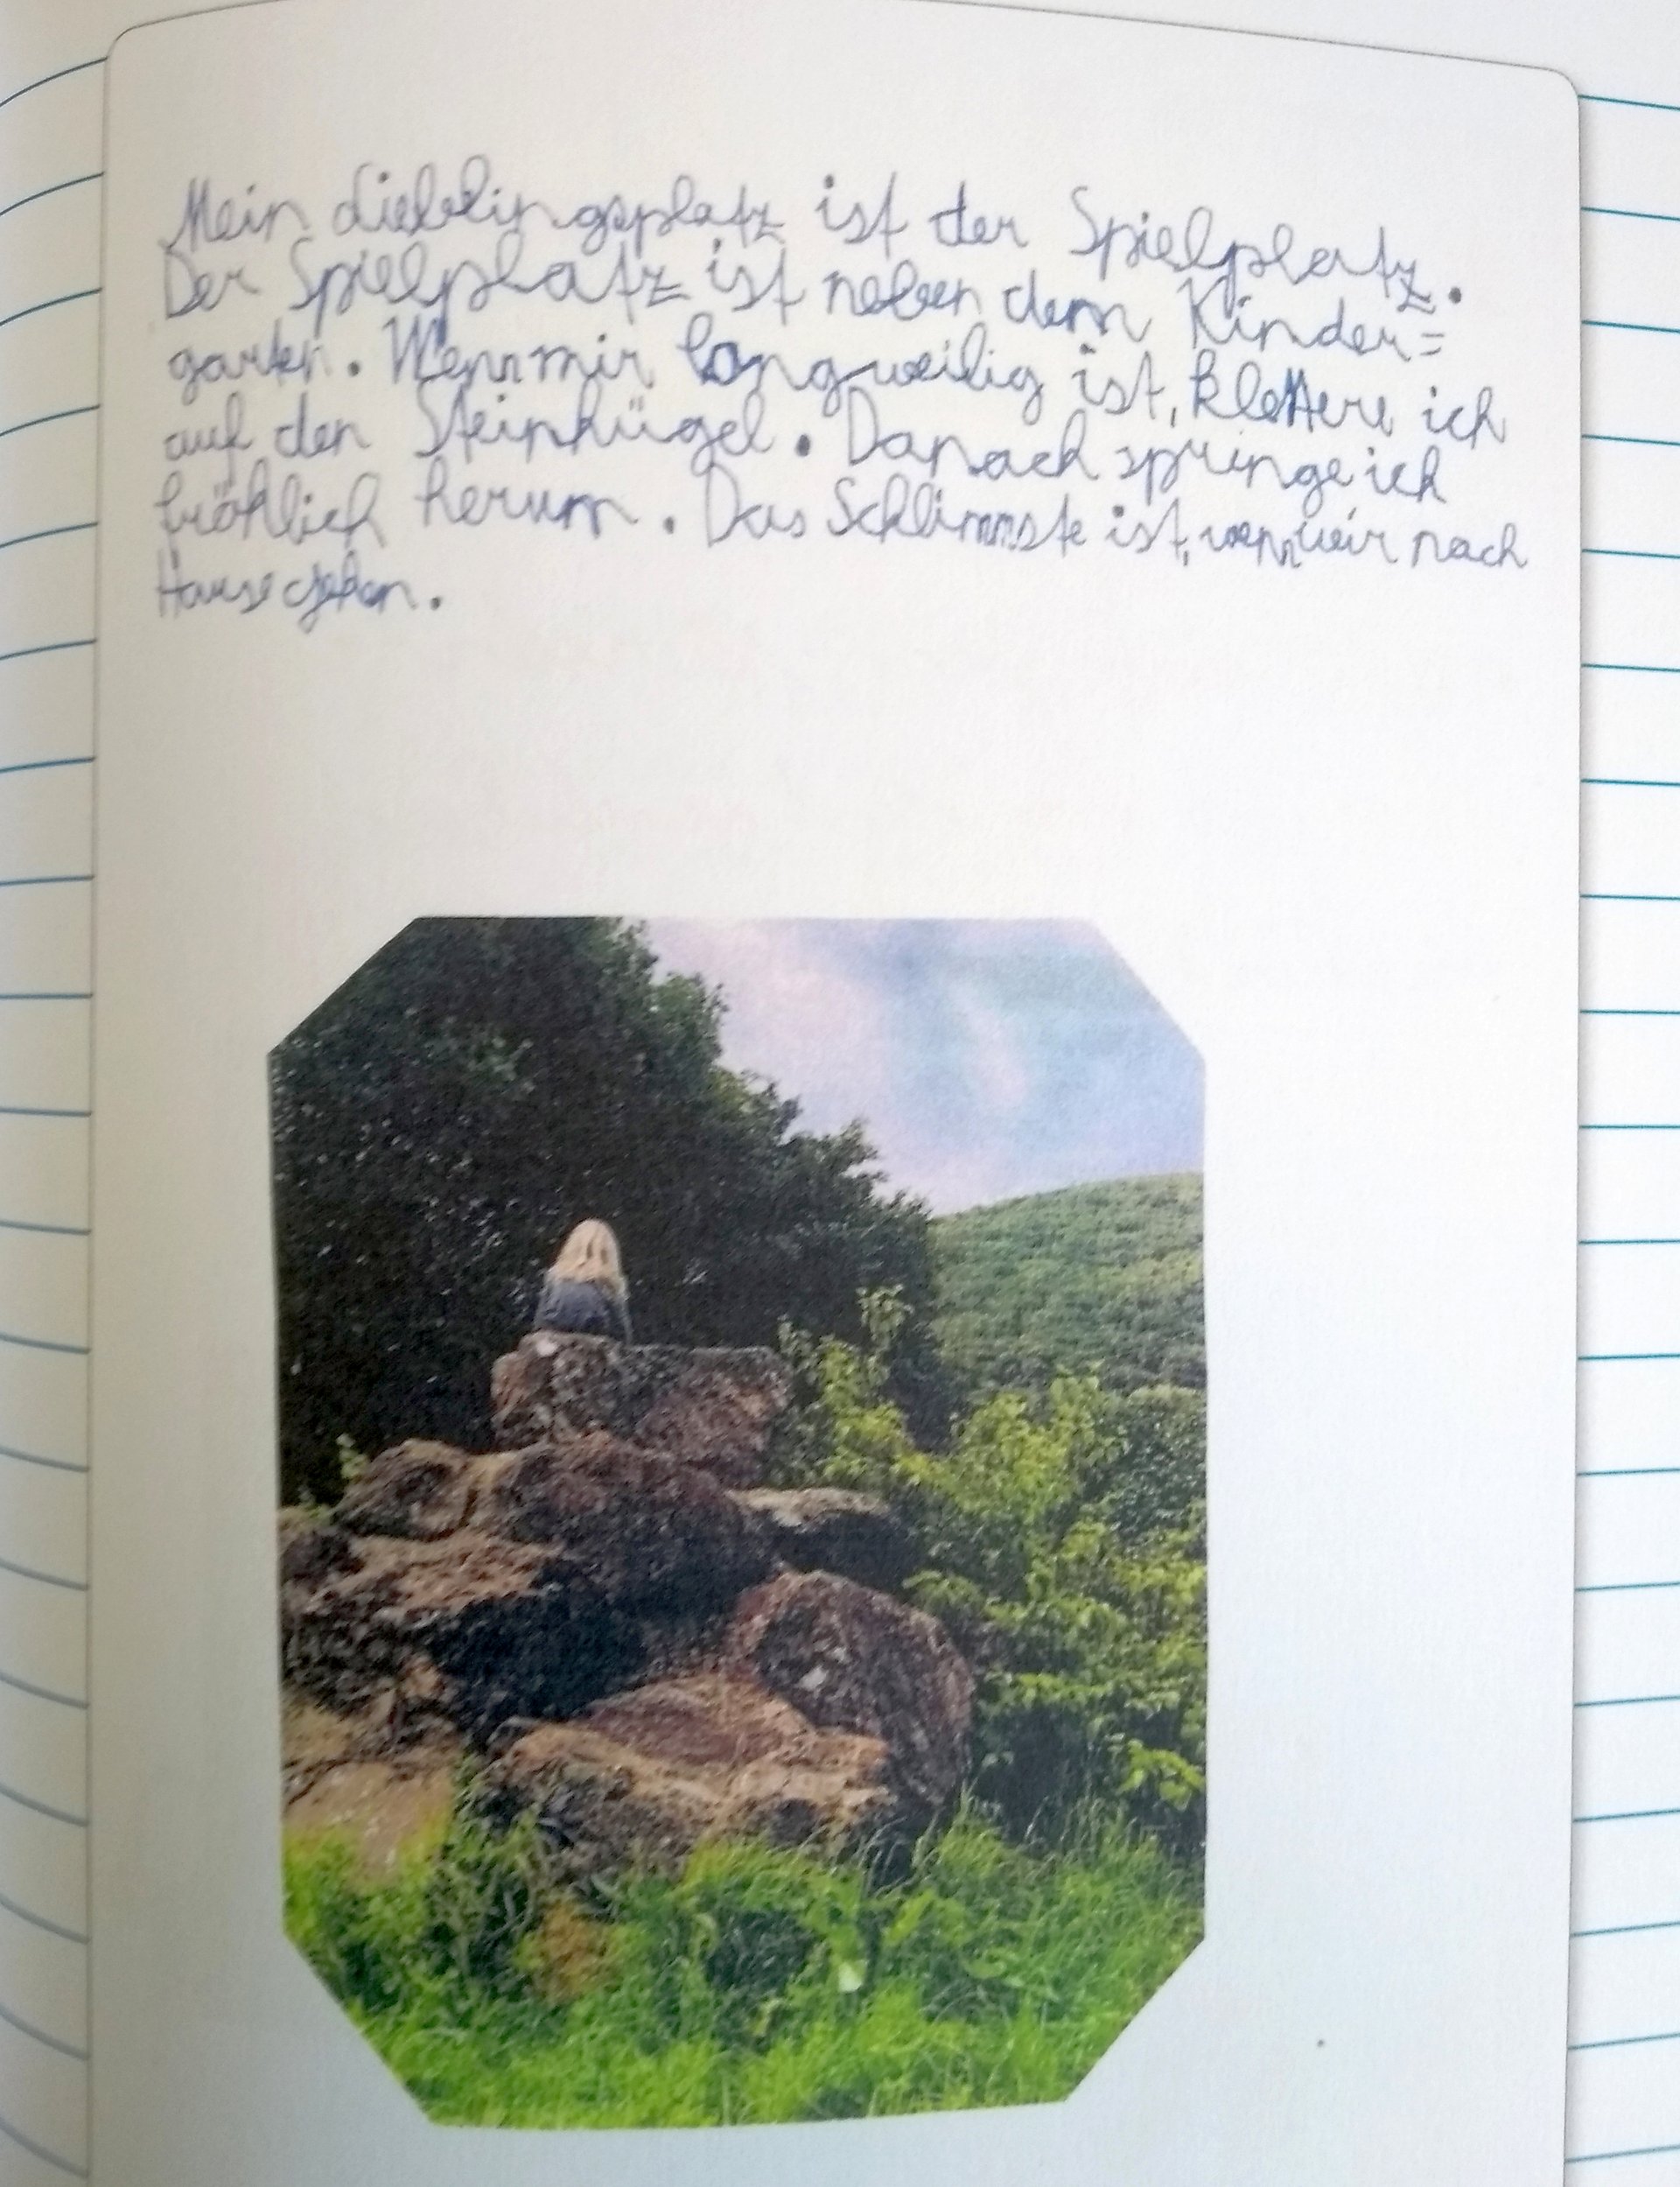 Mein Lieblingsplatz ist der Spielplatz.
Der Spielplatz ist neben dem Kinder=
garten. Wenn mir langweilig ist, klettere ich
auf den Steinhügel. Danach springe ich
fröhlich herum. Das Schlimmste ist, wenn wir nach
Hause gehen.